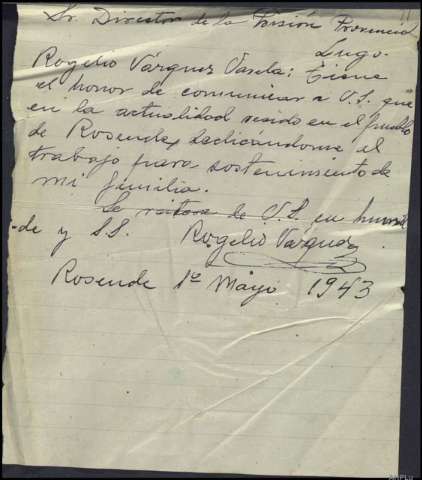 Sr. Director de la Prisión Provincial
Lugo.
Rogelio Vázquez Varela: Tiene
el honor de comunicar a V.S. que
en la actualidad resido en el pueblo
de Rosende, dedicándome el
trabajo para sostenimiento de
mi familia.
Se reitera de V.S. su humil-
-de y S.S. Rogelio Vázquez
Rosende 1º Mayo 1943
AHPLu